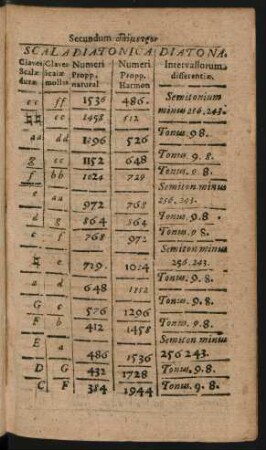 Secundum
SCALA DIATONICA DIATONA.
Claves Claves Numeri Numeri Intervallorum
Scalæ Scalæ Propp. Propp. differentiæ.
duræ mollis natural Harmon
cc ff 1536 486. Semitonium
minus 256. 243.
♮♮ ee 1458 512 Tonus. 9 8.
aa dd 1296 Tonus. 9. 8.
g cc 1152 648 Tonus. 9. 8.
f bb 1024 729 Semiton minus
e aa 972 768 256. 243.
d g 864 864 Tonus. 9. 8
c f 768 972 Tonus. 9 8.
Semiton minus
♮ e 729. 1024 256. 243.
a d 648 1152 Tonus. 9. 8.
G c 576 1296 Tonus. 9. 8.
F b 1458 Tonus. 9. 8.
E a 486 1536 Semiton minus
256 243.
D G 432 1728 Tonus. 9. 8.
C F 384 1944 Tonus. 9. 8.